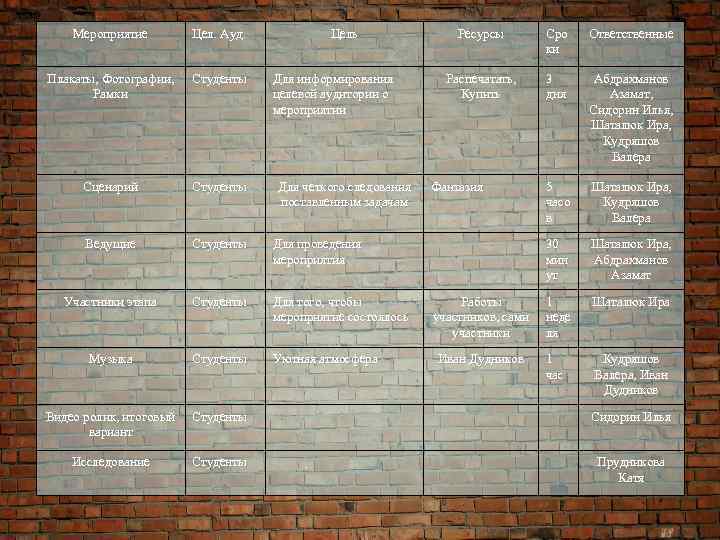 Мероприятие Цел. Ауд. Цель Ресурсы Сро
ки Ответственные
Плакаты, Фотографии,
Рамки
Студенты
Для информирования
целевой аудитории о
мероприятии
Распечатать,
Купить
3
дня
Абдрахманов
Азамат,
Сидорин Илья,
Шаталюк Ира,
Кудряшов
Валера
Сценарий
Студенты
Для четкого следования
поставленным задачам
Фантазия
5
часо
в
Шаталюк Ира,
Кудряшов
Валера
Ведущие
Студенты
Для проведения
мероприятия
30
мин
ут
Шаталюк Ира,
Абдрахманов
Азамат
Участники этапа
Студенты
Для того, чтобы
мероприятие состоялось
Работы
участников, сами
участники
1
неде
ля
Шаталюк Ира
Музыка
Студенты
Уютная атмосфера
Иван Дудников
1
час
Кудряшов
Валера, Иван
Дудников
Видео ролик, итоговый
вариант
Студенты
Сидорин Илья
Исследование
Студенты
Прудникова
Катя